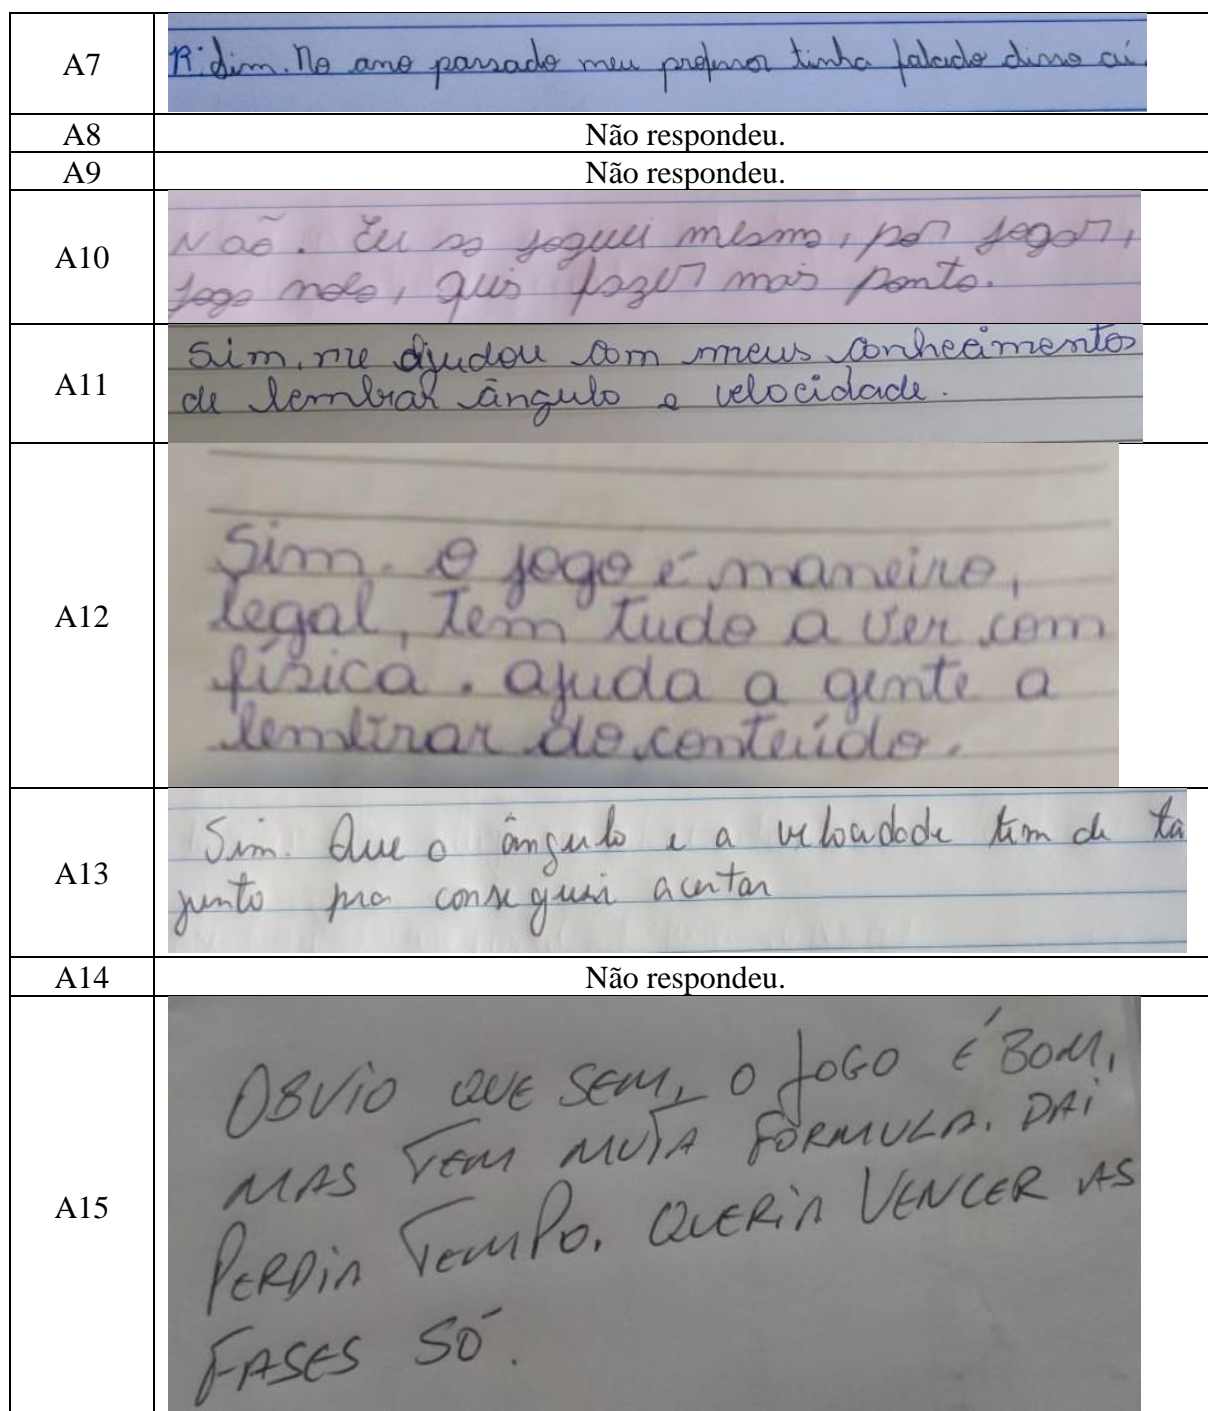 A7
R: Sim. No ano passado meu professor tinha falado disso aí.
A8
Não respondeu.
A9
Não respondeu.
A10
Não. Eu so joguei mesmo, por jogar,
jogo nolo, quis fazer mais ponto.
A11
Sim, me ajudou com meus conhecimentos
de lembrar ângulo e velocidade.
A12
Sim. O jogo é maneiro,
legal, tem tudo a ver com
física. ajuda a gente a
lembrar do conteúdo.
A13
Sim. Que o ângulo e a velocidade tem de ta
junto pra consegui acertar
A14
Não respondeu.
A15
OBVIO QUE SEM, O JOGO É BOM,
MAS TEM MUTA FÓRMULA. DAI
PERDIA TEMPO. QUERIA VENCER AS
FASES SÓ.